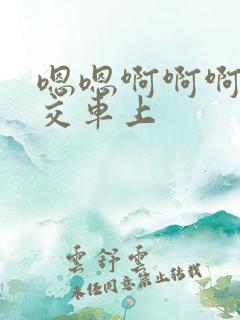 嗯嗯啊啊啊
交车上
雲舒雲
未经同意禁止转载